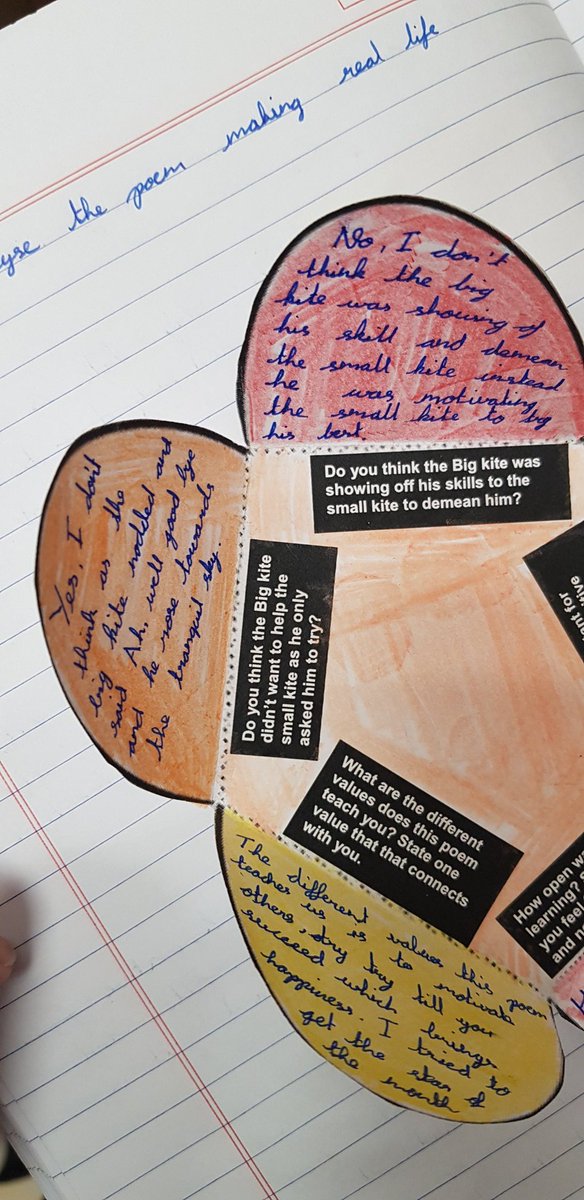 yse the poem making real life
No, I don't
think the big
kite was showing of
his skill and demean
the small kite instead
he was motivating
the small kite to try
his best.
Do you think the Big kite was
showing off his skills to the
small kite to demean him?
Yes, I don't
think as the
big kite nodded and
said Ah, well good bye
and he rose towards
the tranquil sky.
Do you think the Big kite
didn't want to help the
small kite as he only
asked him to try?
What are the different
values does this poem
teach you? State one
value that that connects
with you.
The different values this poem
teaches us is to motivate
others, try till you
succeed which brings
happiness. I tried to
get the star of
the month
How open w
learning?
you feel
and n